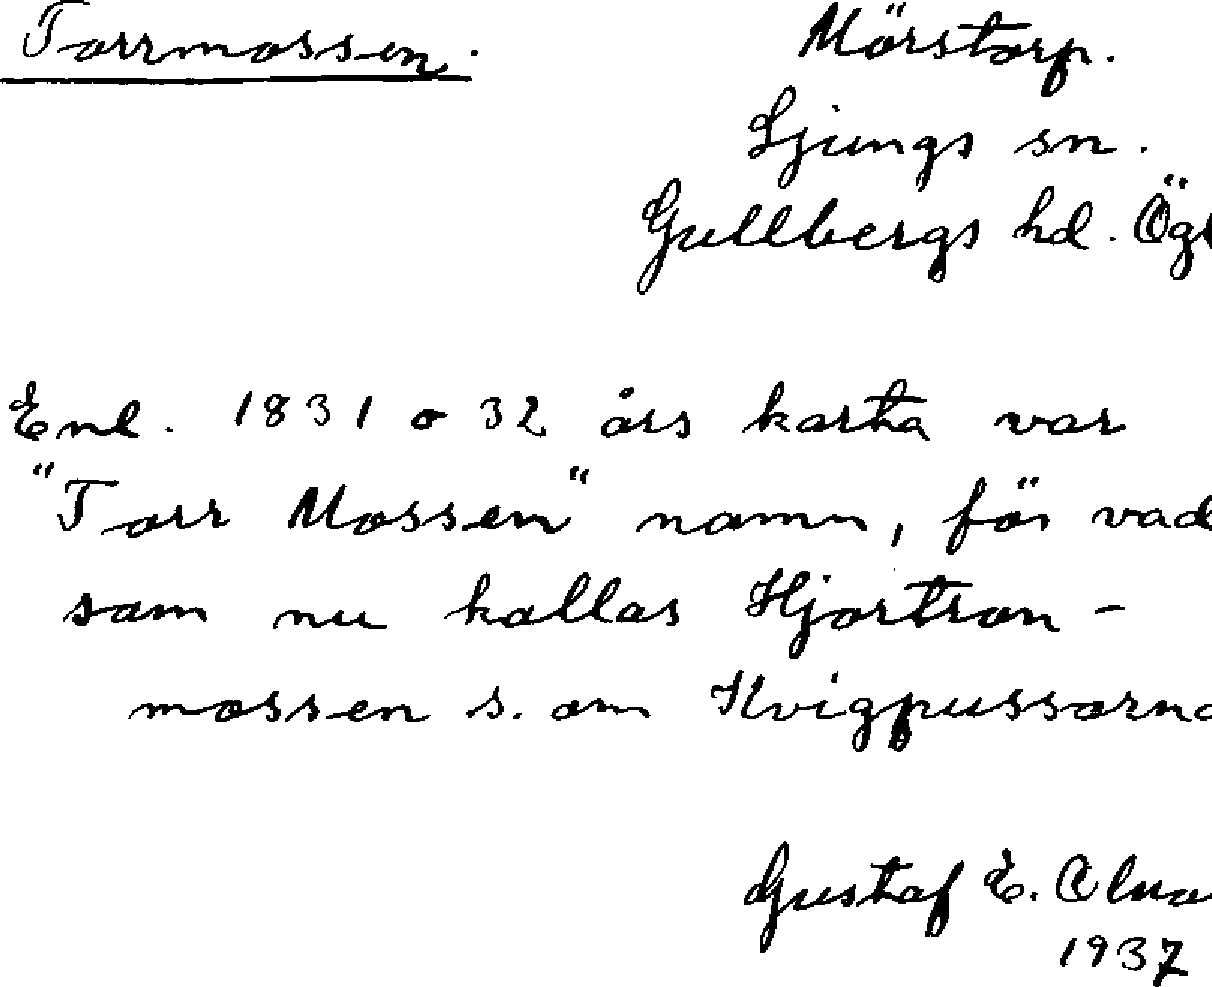 Torrmossen. Mörstorp.
Ljungs sn.
Gullbergs hd. Ögl
Enl. 1831 o 32 års karta var
"Torr Mossen" namn, för vad
som nu kallas Hjortron-
mossen s. om Kvigpussarna
Gustaf E.
1937